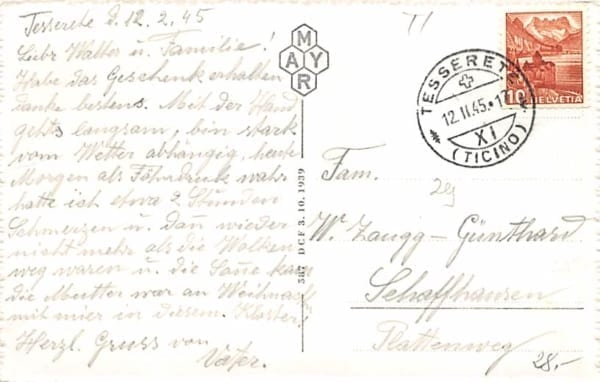 Tesserete d. 12.2.45
Liebr Walter u. Familie!
Habe das Geschenk erhalten
danke bestens. Mit der Hand
gehts langsam, bin stark
vom Wetter abhängig, heute
Morgen als Föhndruck wahr
hatte ich etwa 2 Stunden
Schmerzen u. dan wieder
nicht mehr als die Wolken
weg waren u. die Sone kam
die Mutter war an Weihnach
mit mier in diesem Kloster.
Herzl. Gruss von
Vater.
MAYR
387 DCF 3.10.1939
TI
10
HELVETIA
TESSERETE
12.II.45.17
XI
(TICINO)
Fam.
W. Zaugg-Günthard
Schaffhausen
Plattenweg
28.-